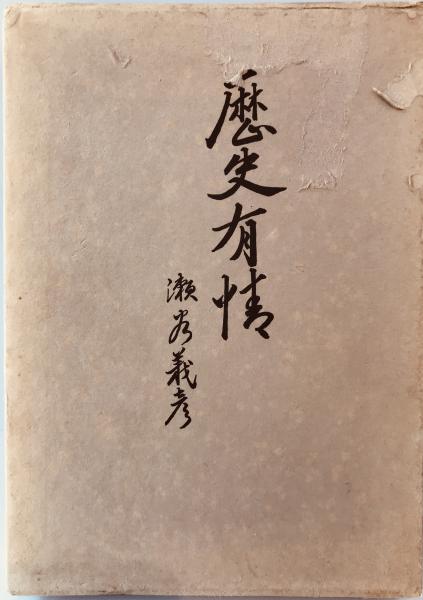 歴史有情
瀬谷義彦